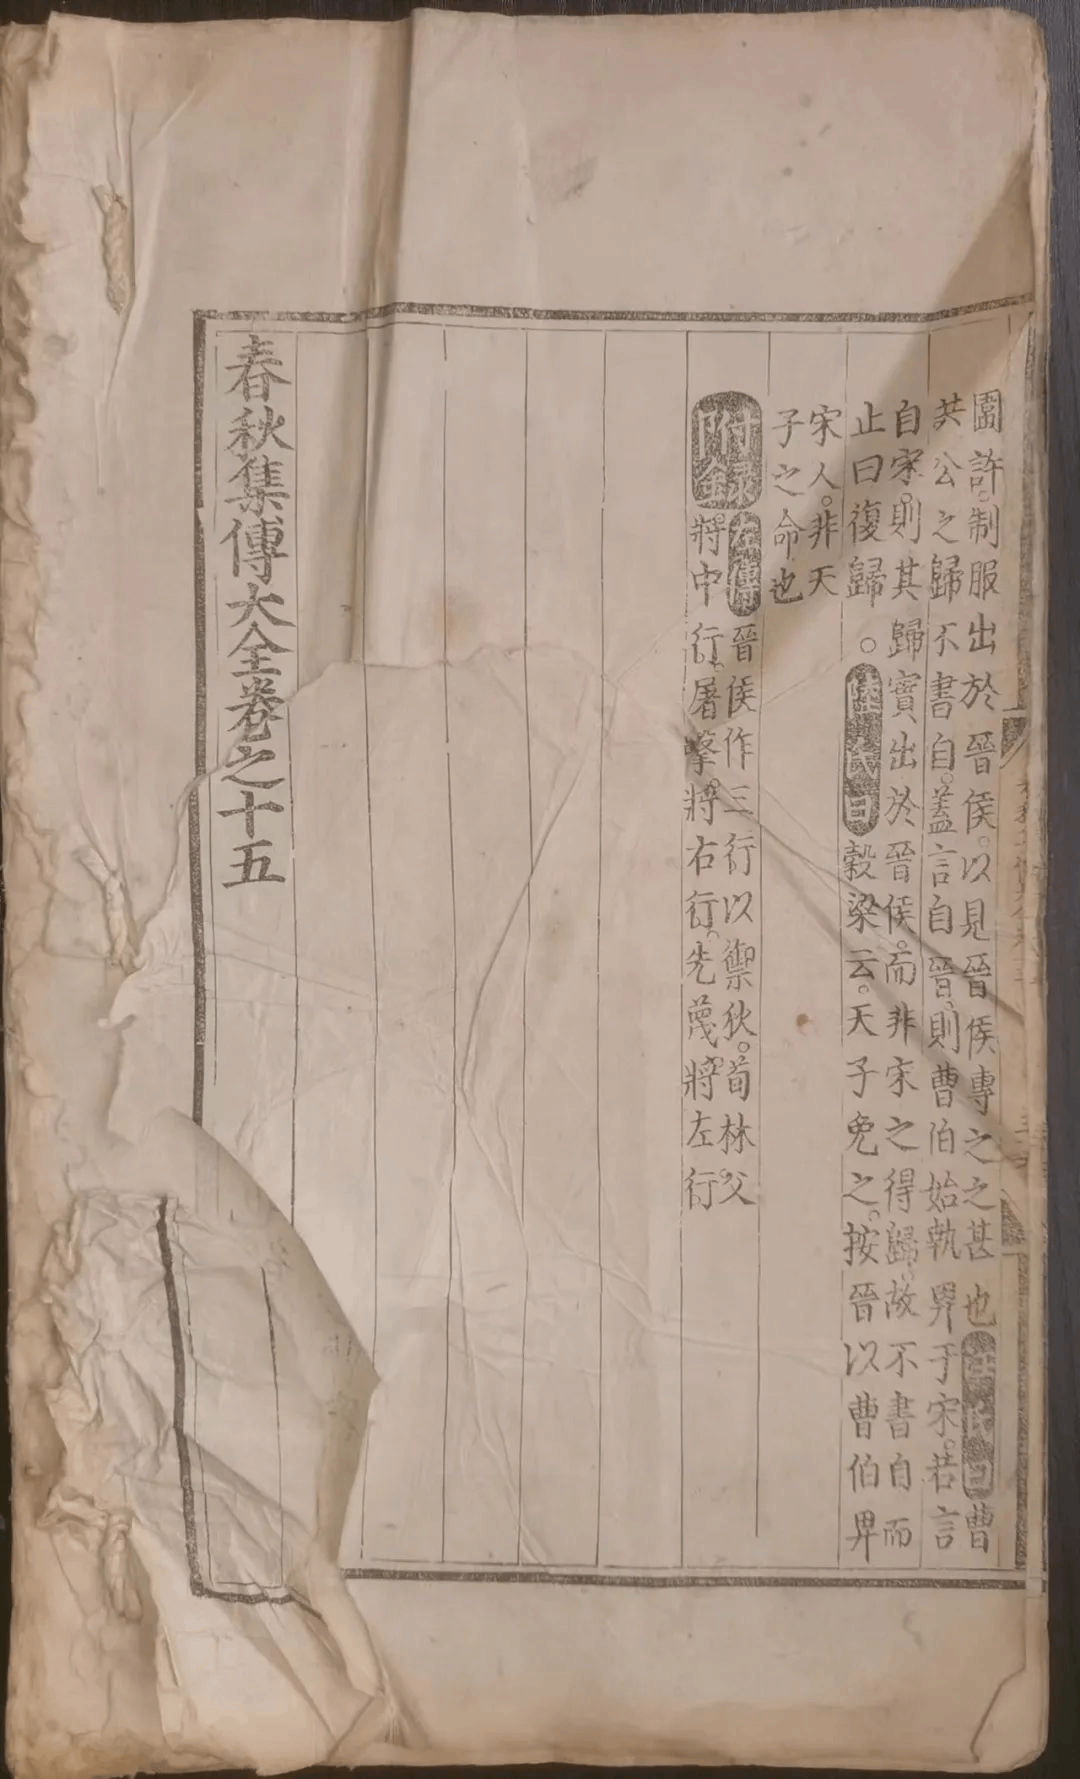 圍許制服出於晉侯以見晉侯專之之甚也汪氏曰曹
共公之歸不書自蓋言自晉則曹伯始執畀于宋若言
自宋則其歸實出於晉侯而非宋之得歸故不書自而
止曰復歸○陸氏曰穀梁云天子免之按晉以曹伯畀
宋人非天
子之命也
附錄左傳晉侯作三行以禦狄荀林父
將中行屠擊將右行先蔑將左行
春秋集傳大全卷之十五